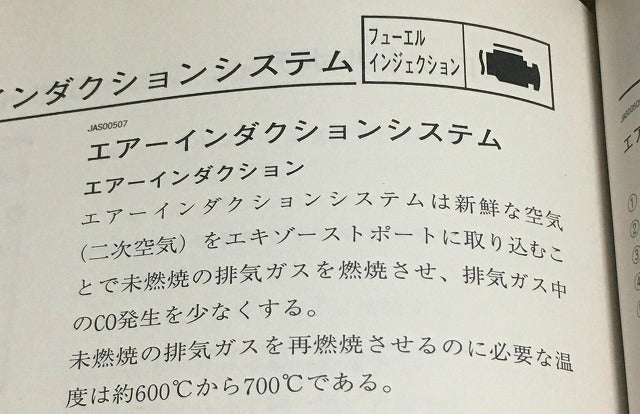 インダクションシステム
フューエル
インジェクション
JAS00507
エアーインダクションシステム
エアーインダクション
エアーインダクションシステムは新鮮な空気
(二次空気)をエキゾーストポートに取り込むこ
とで未燃焼の排気ガスを燃焼させ、排気ガス中
のCO発生を少なくする。
未燃焼の排気ガスを再燃焼させるのに必要な温
度は約600℃から700℃である。
エ
①
②
③
④